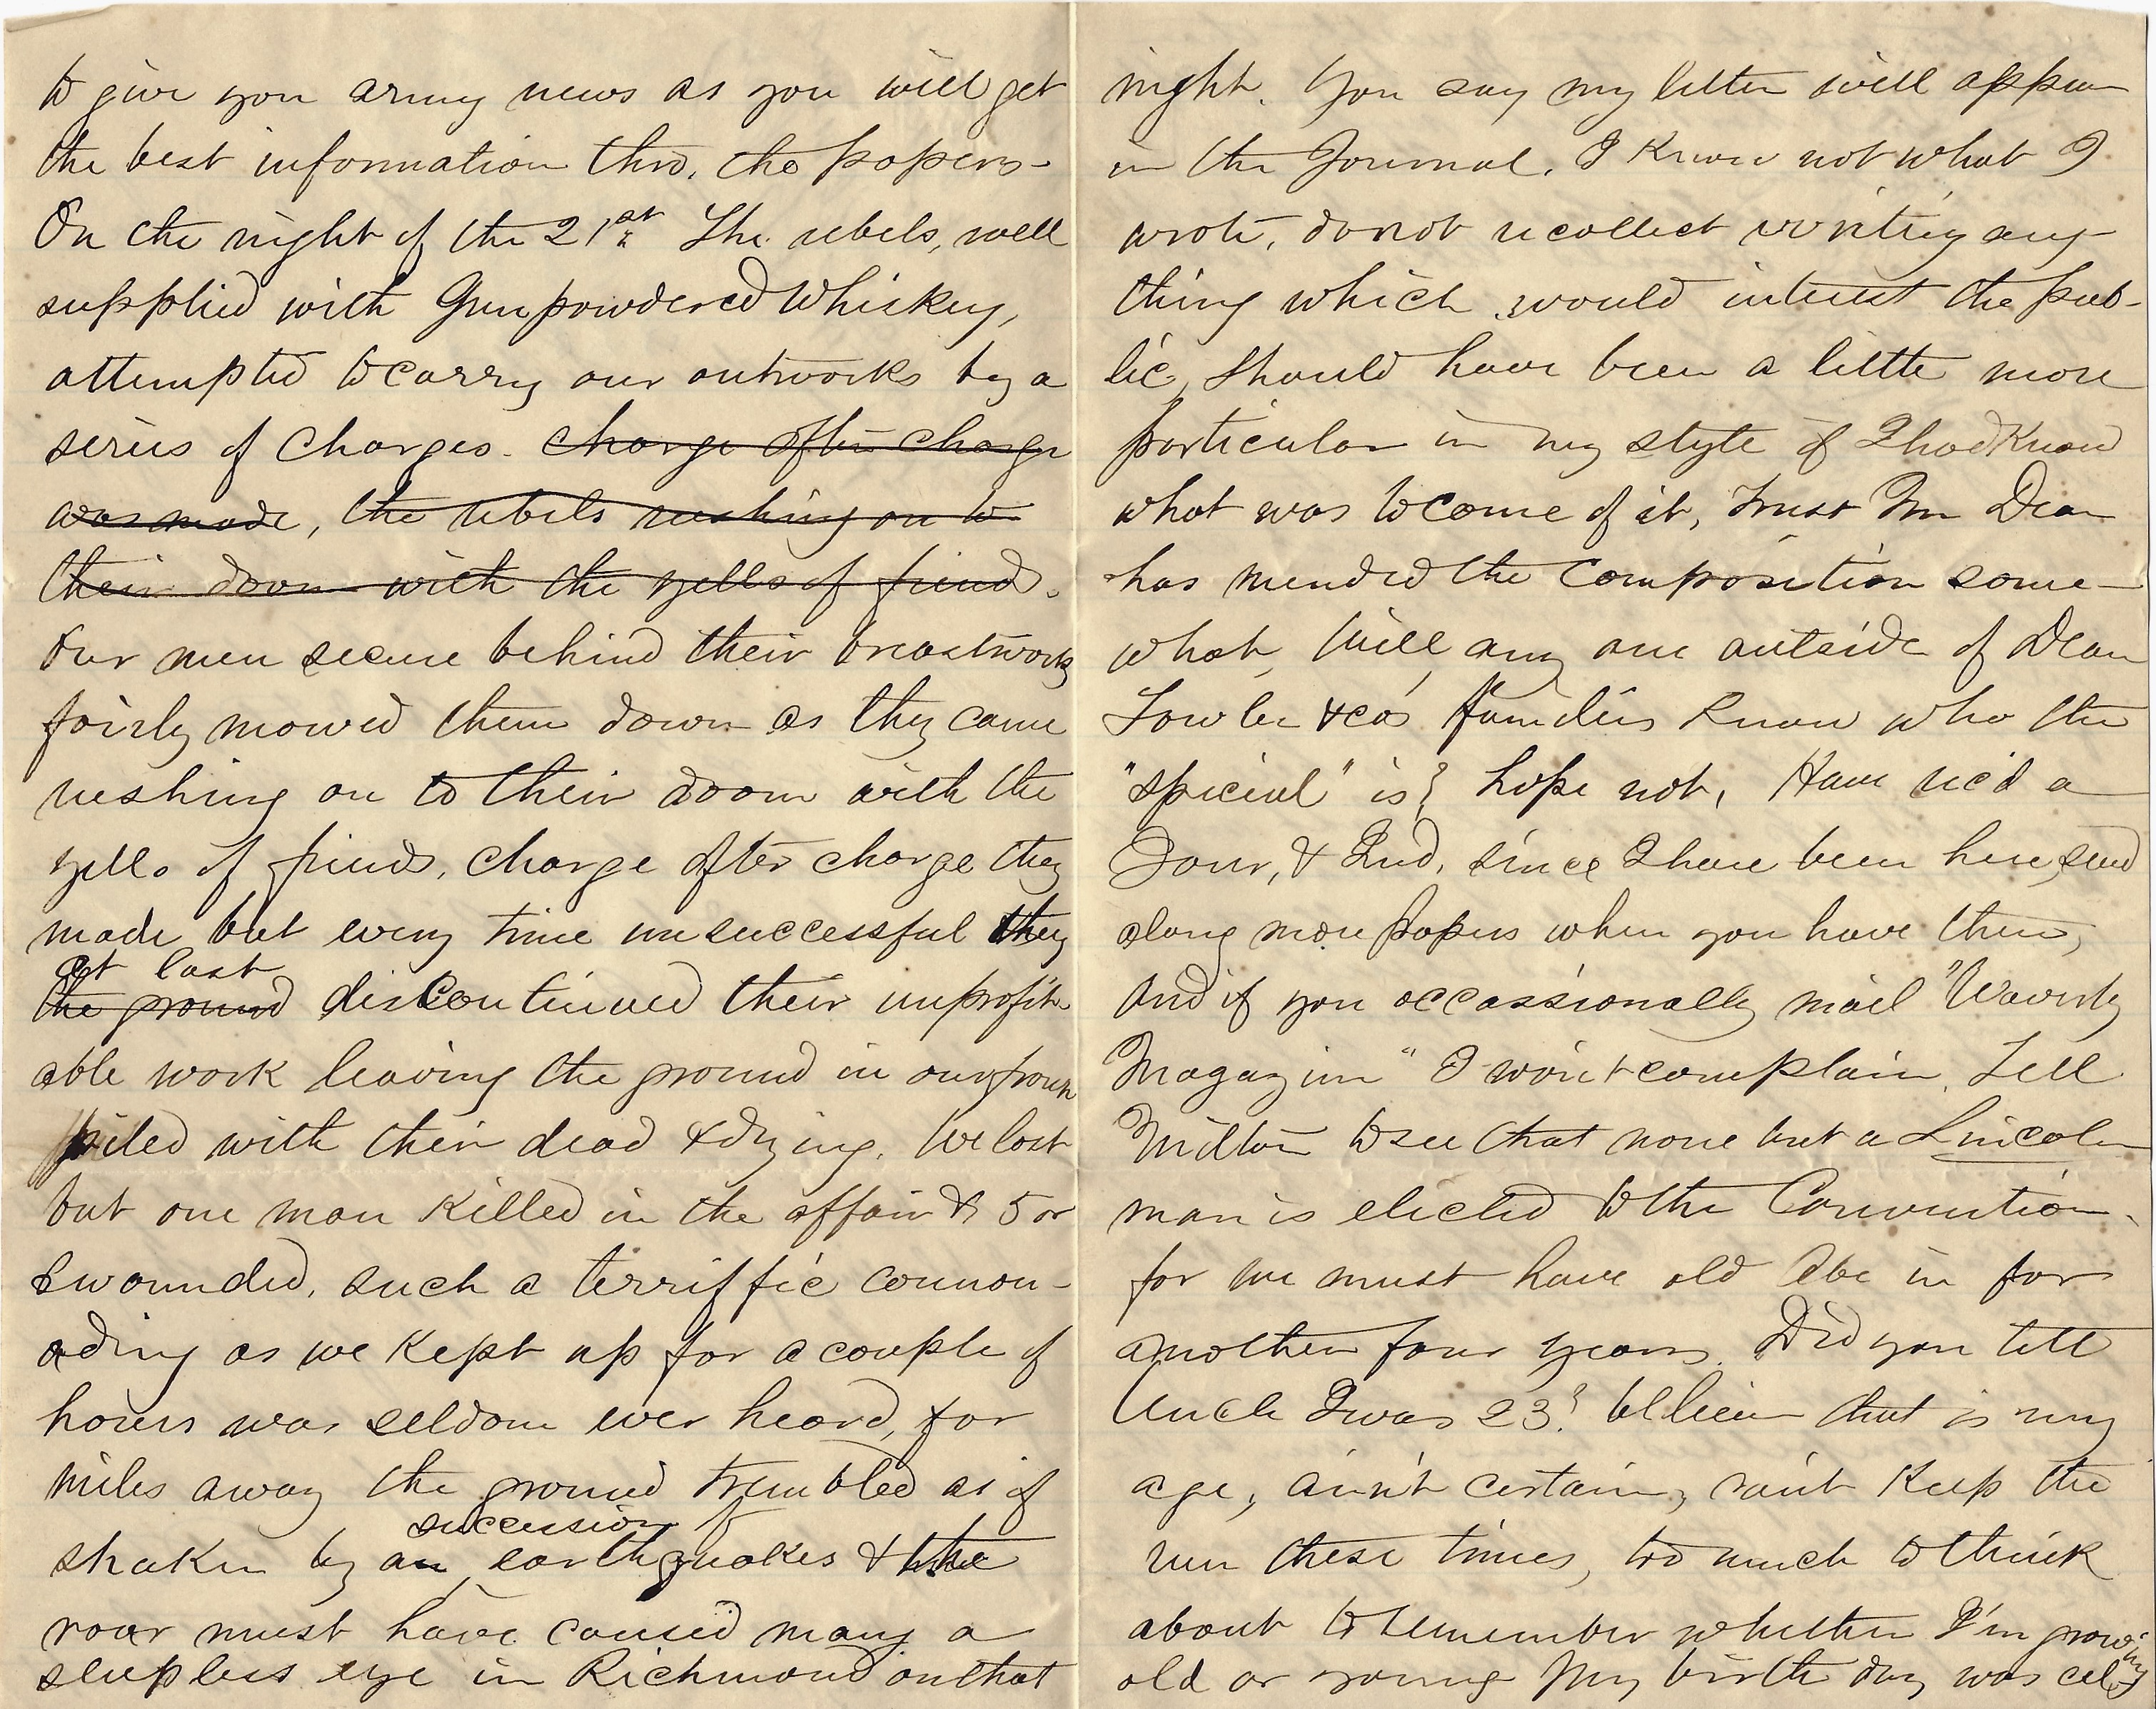 to give you army news as you will get
the best information thro, the papers-
On the night of the 21st The rebels, well
supplied with Gunpowdered Whiskey,
attempted to carry our outworks by a
series of Charges. charge after charge
was made, the rebels rushing on to
their doom with the yells of fiends.
Our men secure behind their breastworks
fairly mowed them down as they came
rushing on to their doom with the
yells of fiends, charge after charge they
made but every time unsuccessful they
at last
the ground discontinued their unprofit
able work leaving the ground in our front
piled with their dead & dying. We lost
but one man killed in the affair & 5 or
wounded, such a terriffic cannon-
ading as we kept up for a couple of
hours was seldom ever heard, for
miles away the ground trembled as if
succession of
shaken by an earthquakes & the
roar must have caused many a
sleepless eye in Richmond on that
night. You say my letter will appear
in the Journal. I know not what I
wrote, do not recollect writing any
thing which would interest the pub-
lic, should have been a little more
particular in my style if I had known
what was to come of it, trust Mr Dean
has mended the composition some-
what, Will any one outside of Dean
Fowler & co's families know who the
"special" is? hope not, Have rec'd a
Jour, & Ind, since I have been here, send
along more papers when you have them,
and if you occassionally mail "Waverly
Magazine" I won't complain. Tell
Milton to see that none but a Lincoln
man is elected to the Convention.
for we must have old Abe in for
another four years. Did you tell
Uncle I was 23? believe that is my
age, ain't certain, can't keep the
run these times, too much to think
about to remember whether I'm growing
old or young My birth day was